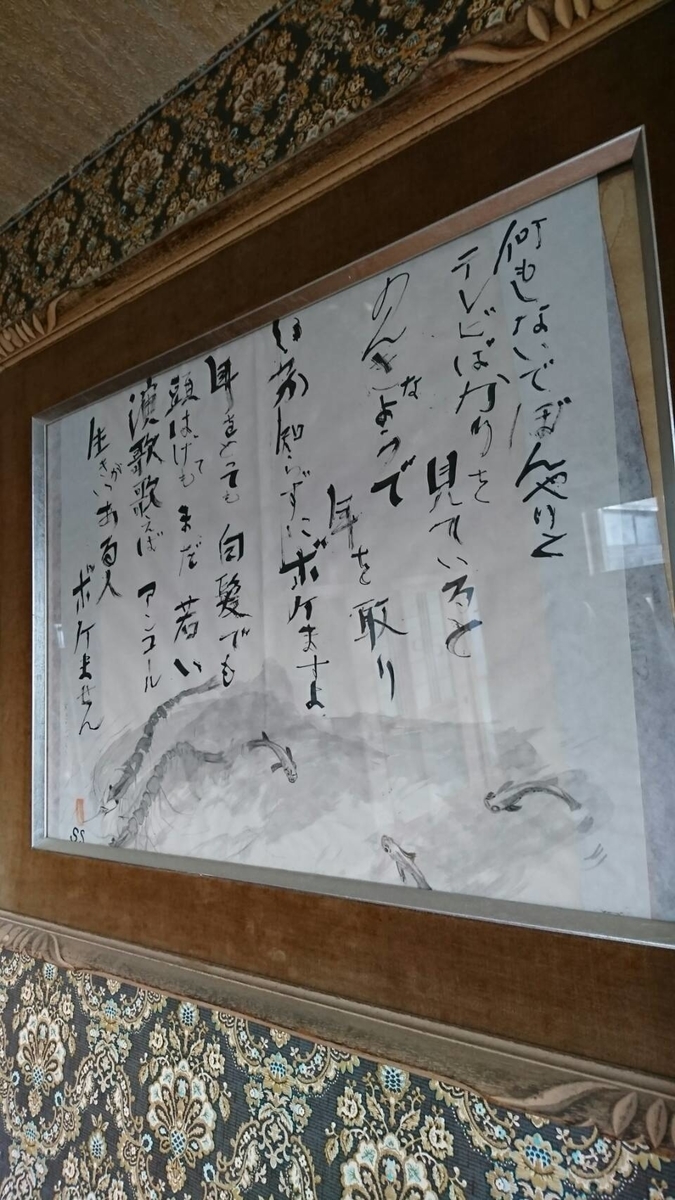 何もしないでぼんやりと
テレビばかりを見ていると
のんきなようで年を取り
いつか知らずにボケますよ
年をとっても白髪でも
頭はげてもまだ若い
演歌歌えばアンコール
生きがいある人ボケません